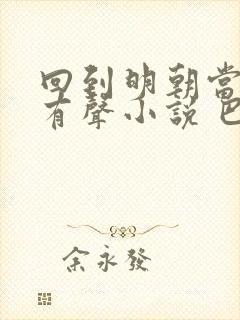 回到明朝當
有聲小說
余永發